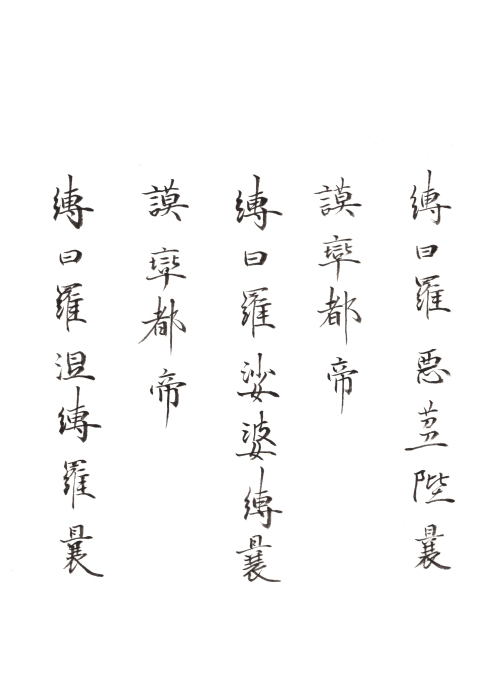 縛曰羅惡陛曩
謨都帝
縛曰羅娑婆縛曩
謨都帝
縛曰羅涅縛羅曩